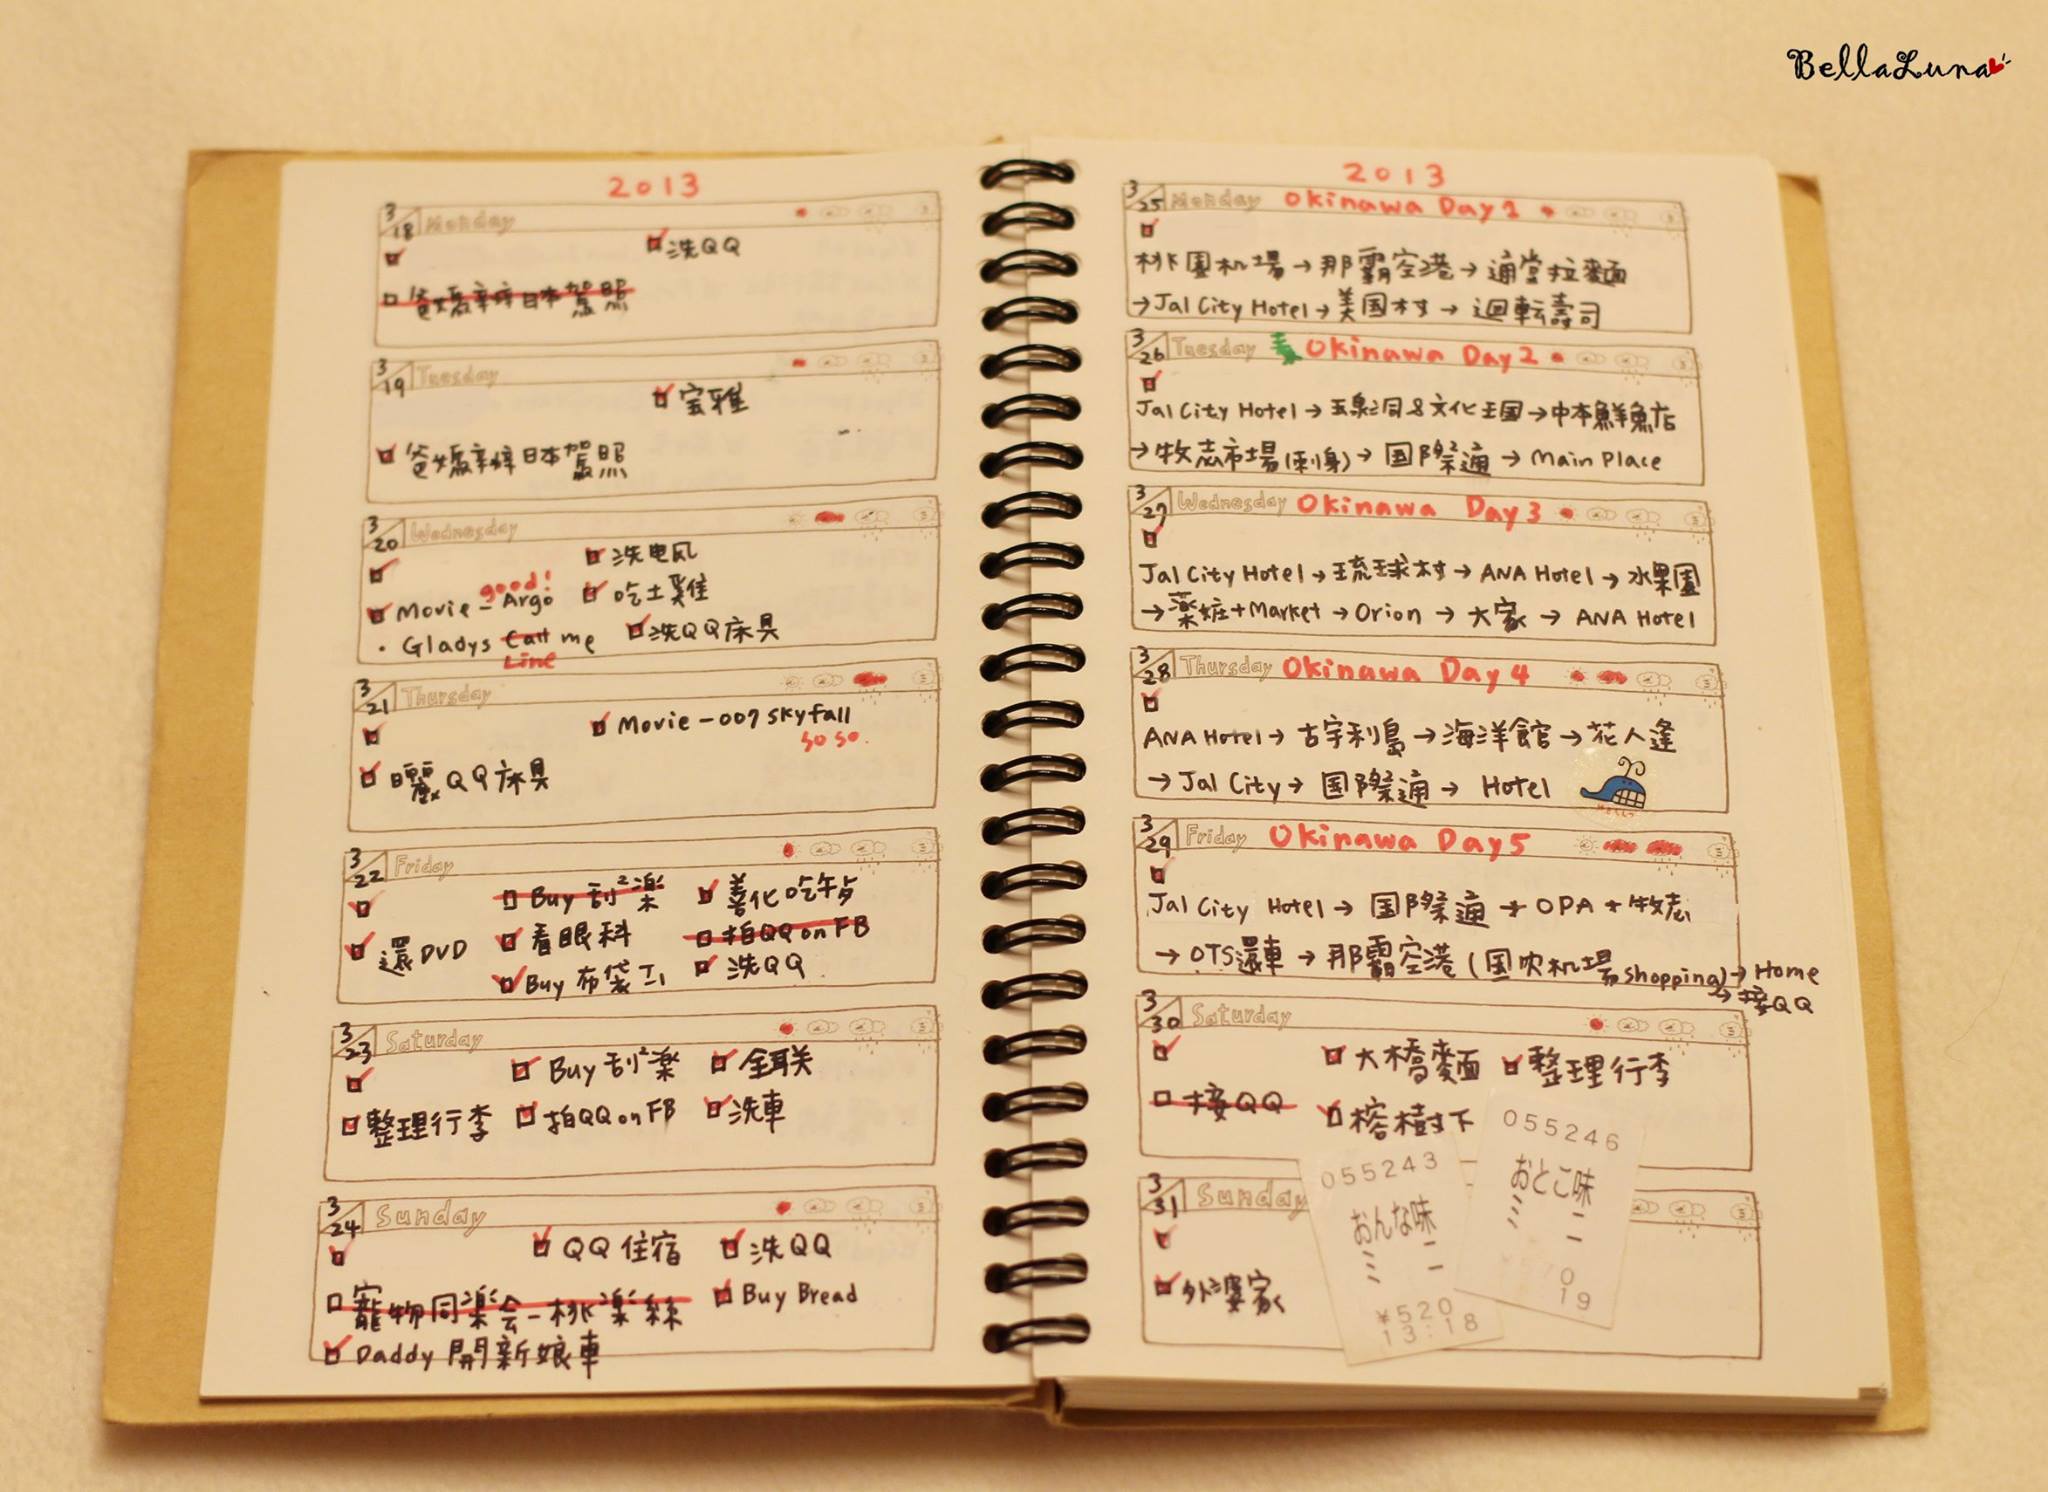 BellaLuna
2013
3/18 Monday
洗QQ
爸媽辛辦日本駕照
3/19 Tuesday
宝雅
爸媽辛辦日本駕照
3/20 Wednesday
洗电风
good!
Movie - Argo
吃土雞
· Gladys Call me
洗QQ床具
Line
3/21 Thursday
Movie - 007 skyfall
so so.
曬QQ床具
3/22 Friday
Buy 刮²楽
善化吃牛
還DVD
看眼科
拍QQ on FB
Buy 布袋
洗QQ
3/23 Saturday
Buy 刮²楽
全联
整理行李
拍QQ on FB
洗車
3/24 Sunday
QQ 住宿
洗QQ
寵物同楽会-桃楽絲
Buy Bread
Daddy 開新娘車
2013
3/25 Monday Okinawa Day 1
桃園机場→那霸空港→通堂拉麵
→Jal City Hotel→美国村→迴転壽司
3/26 Tuesday Okinawa Day 2
Jal City Hotel→玉泉洞&文化王国→中本鮮魚店
→牧志市場(刺身)→国際通→Main Place
3/27 Wednesday Okinawa Day 3
Jal City Hotel→琉球村→ANA Hotel→水果園
→薬妝+Market→Orion→大家→ANA Hotel
3/28 Thursday Okinawa Day 4
ANA Hotel→古宇利島→海洋館→花人逢
→Jal City→国際通→Hotel
3/29 Friday Okinawa Day 5
Jal City Hotel→国際通→OPA+牧志
→OTS還車→那霸空港(国内机場shopping)→Home
→接QQ
3/30 Saturday
大橋麵
整理行李
接QQ
榕樹下
3/31 Sunday
外婆家
055243
おんな味
ミニ
¥520
13:18
055246
おとこ味
ミニ
0
19